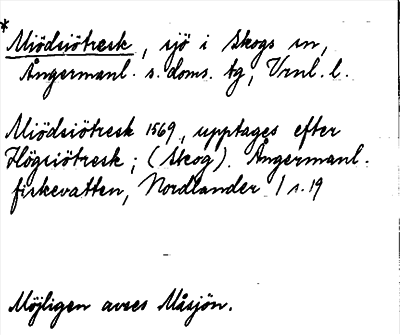 *
Miödsiötresk, sjö i Skogs sn,
Ångermanl. s. doms. tg, Vrnl. l.
Miödsiötresk 1569, upptages efter
Högsiötresk; (Skog). Ångermanl.
fiskevatten, Nordlander 1 s. 19
Möjligen avses Måsjön.